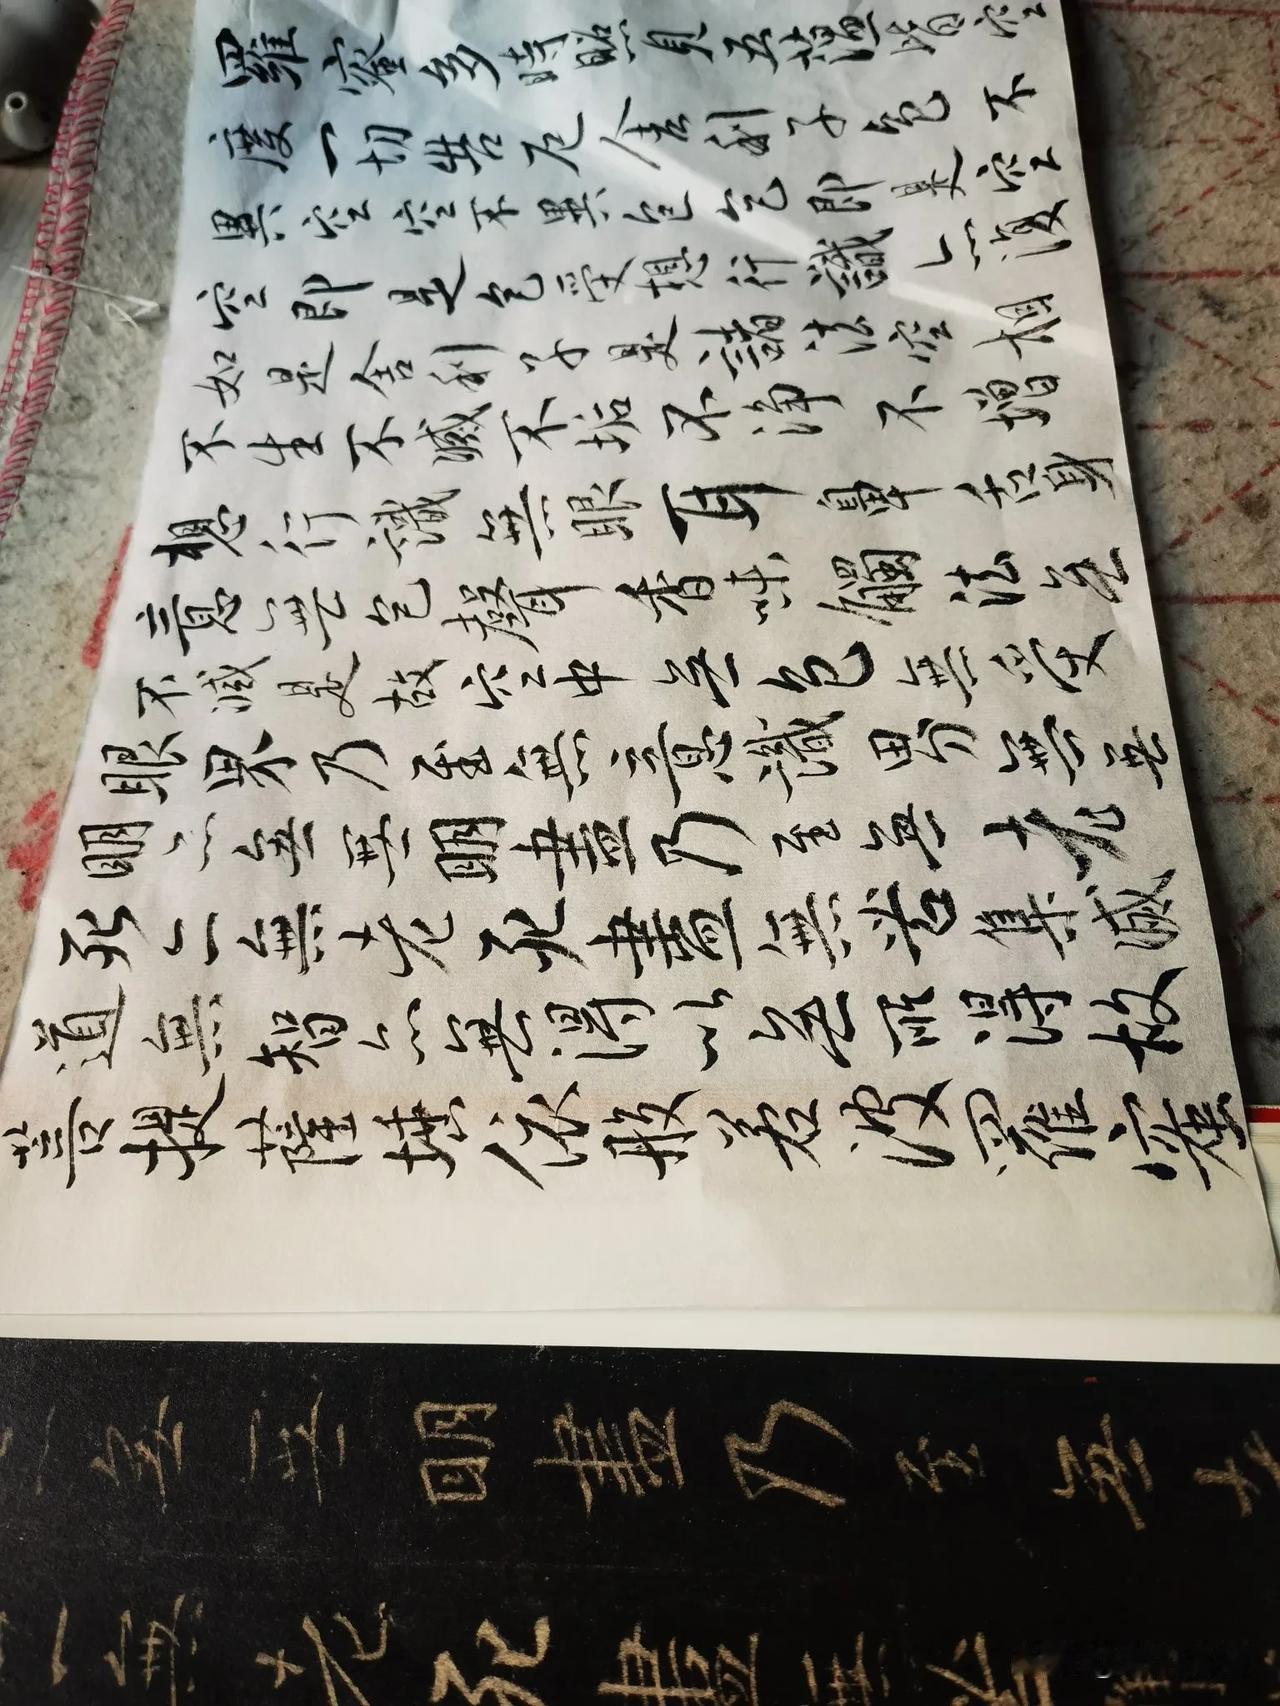 羅蜜多時照見五蘊皆空
度一切苦厄舍利子色不
異空空不異色色即是空
空即是色受想行識亦復
如是舍利子是諸法空相
不生不滅不垢不淨不增
想行識無眼耳鼻舌身
意無色聲香味觸法無
不滅是故空中無色無受
眼界乃至無意識界無無
明亦無無明盡乃至無老
死亦無老死盡無苦集滅
道無智亦無得以無所得故
菩提薩埵依般若波羅蜜
無無明盡乃至無老
亦無老死盡無苦集